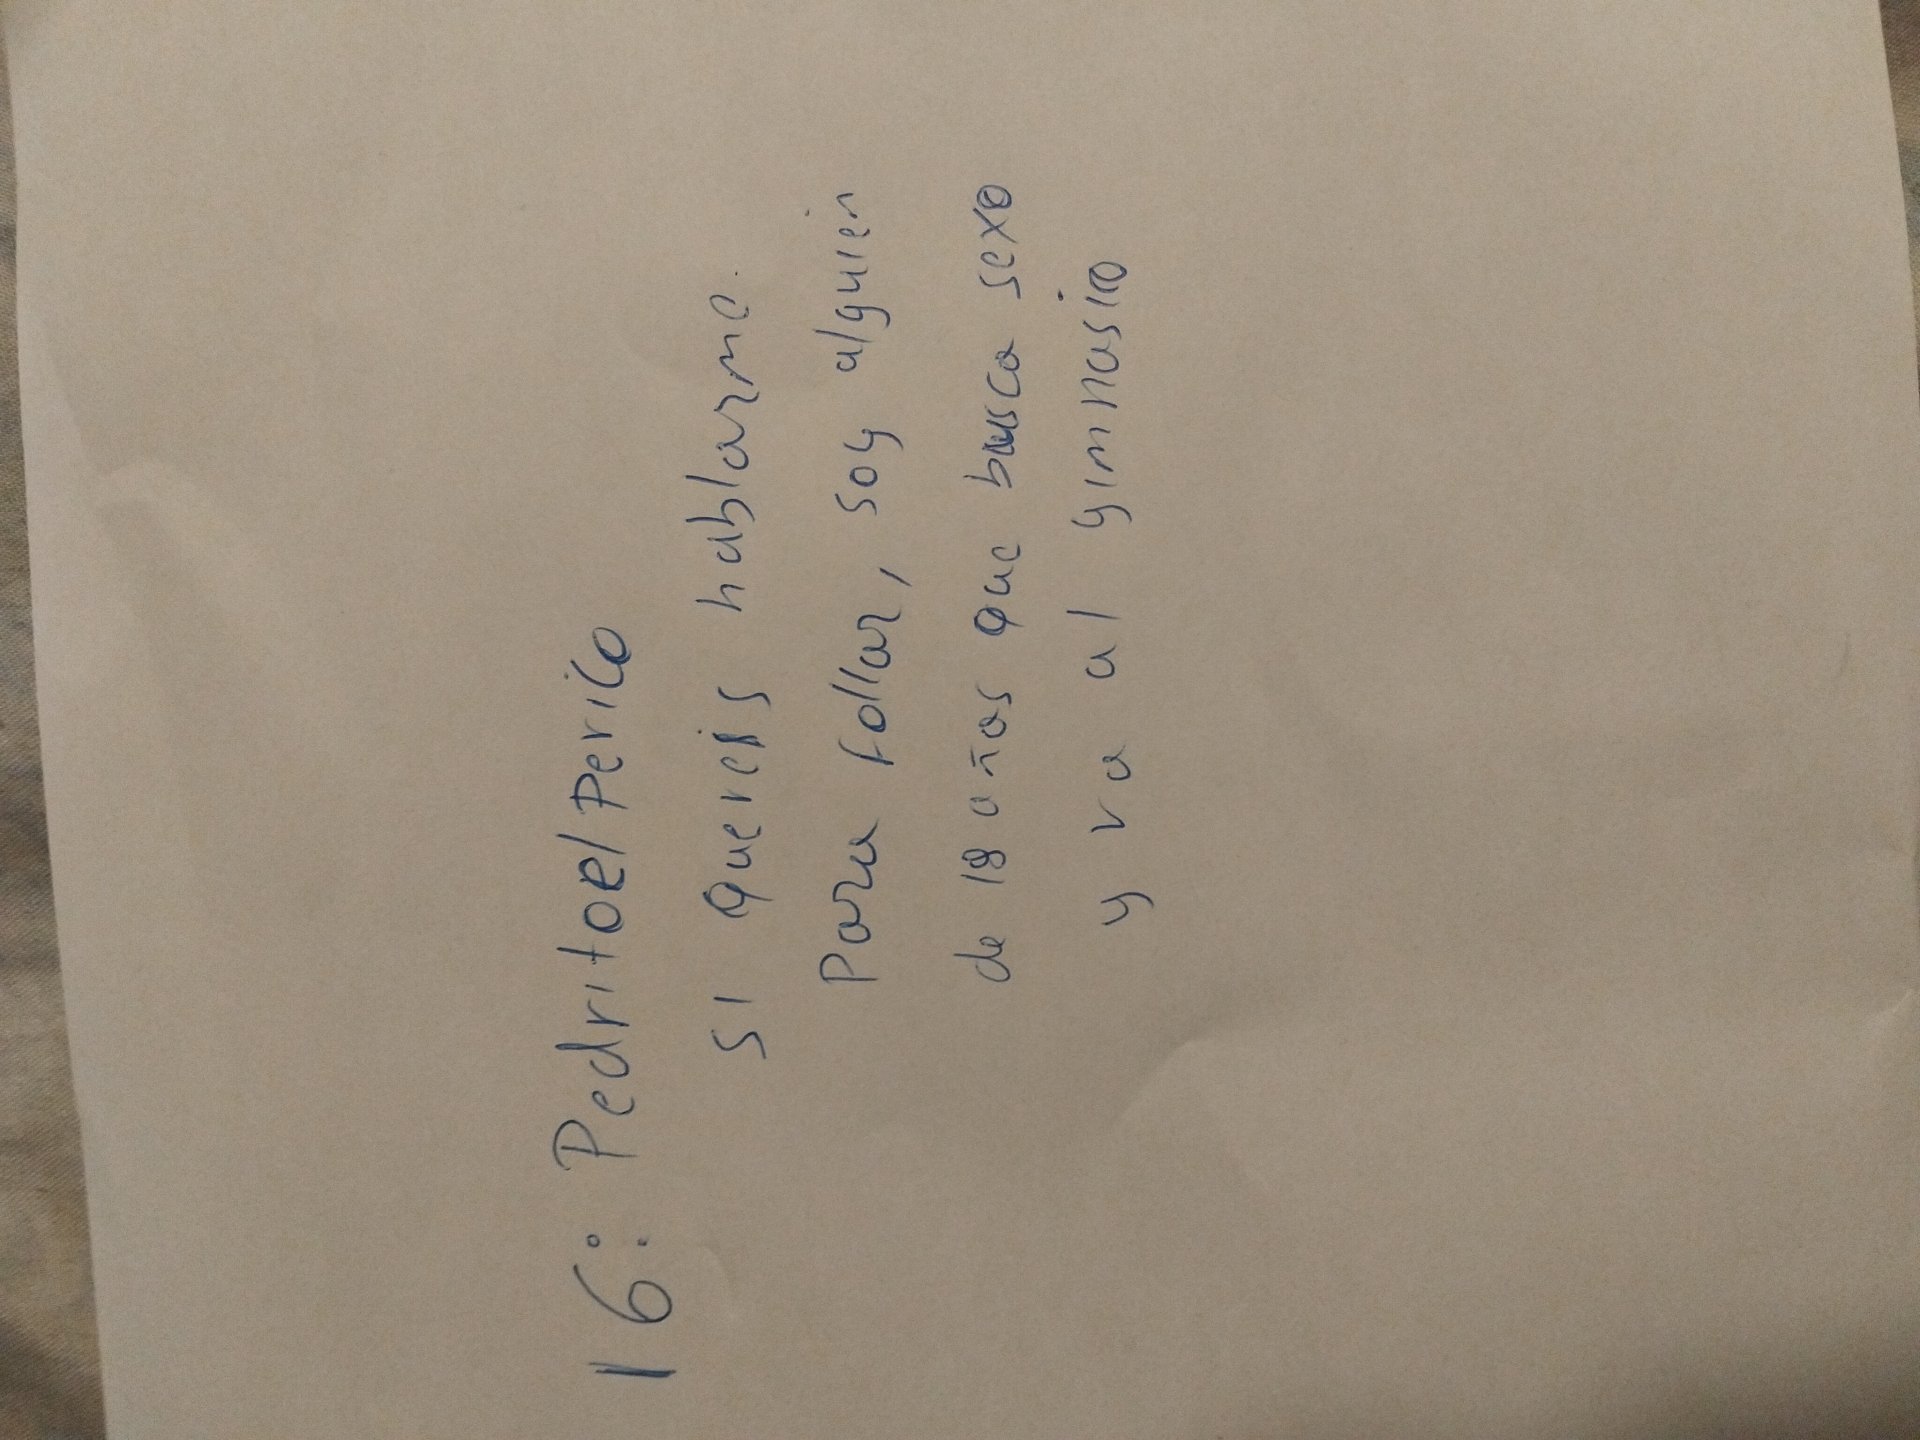 16: Pedritoel Perico
si quereis hablarme
Para follar, soy alguien
de 18 años que busca sexo
y va al gimnasio